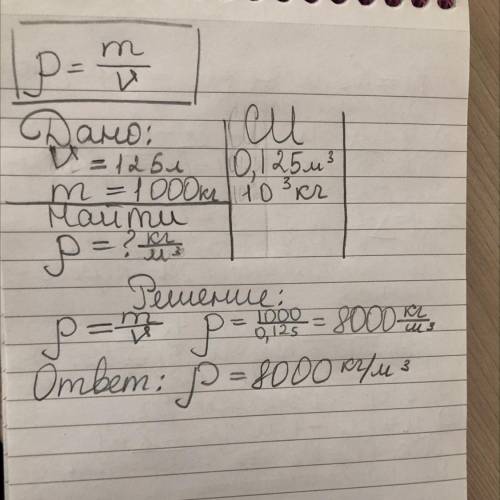 ρ = m/V
Дано: СИ
V = 125л 0,125м³
m = 1000кг 10³кг
Найти
ρ = ? кг/м³
Решение:
ρ = m/V ρ = 1000/0,125 = 8000 кг/м³
Ответ: ρ = 8000 кг/м³